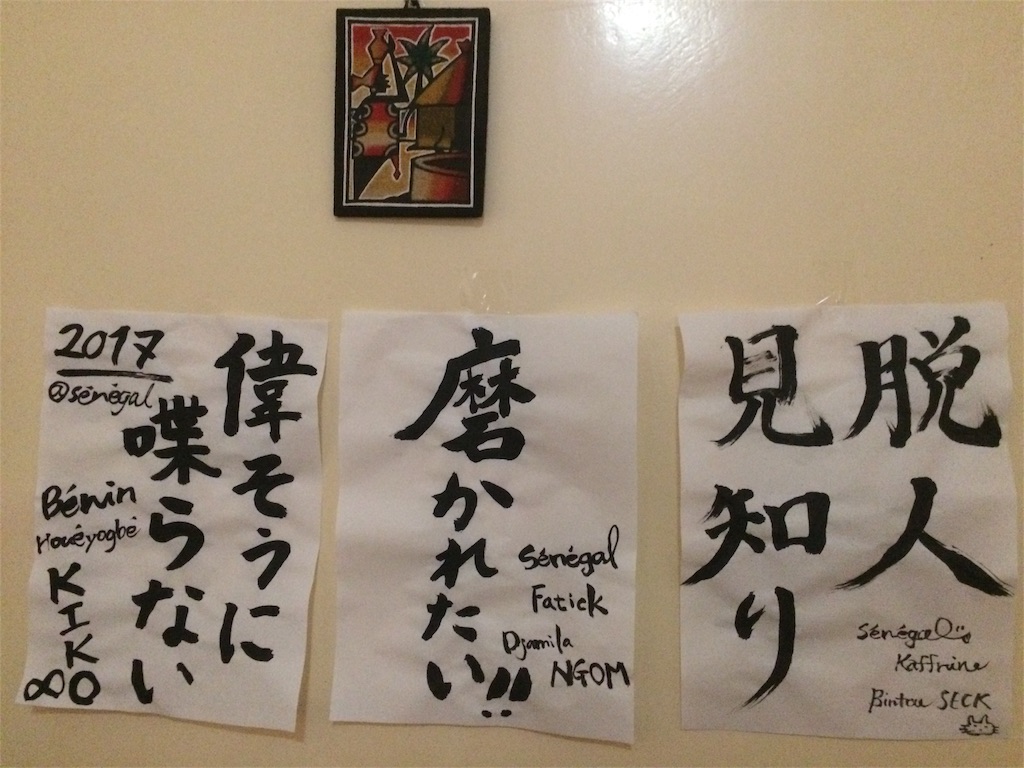 2017
@Sénégal
偉そうに
喋らない
Bénin
Houéyogbé
KIKO
∞
磨かれたい!!
Sénégal
Fatick
Djamila
NGOM
脱人
見知り
Sénégal
Kaffrine
Bintou SECK